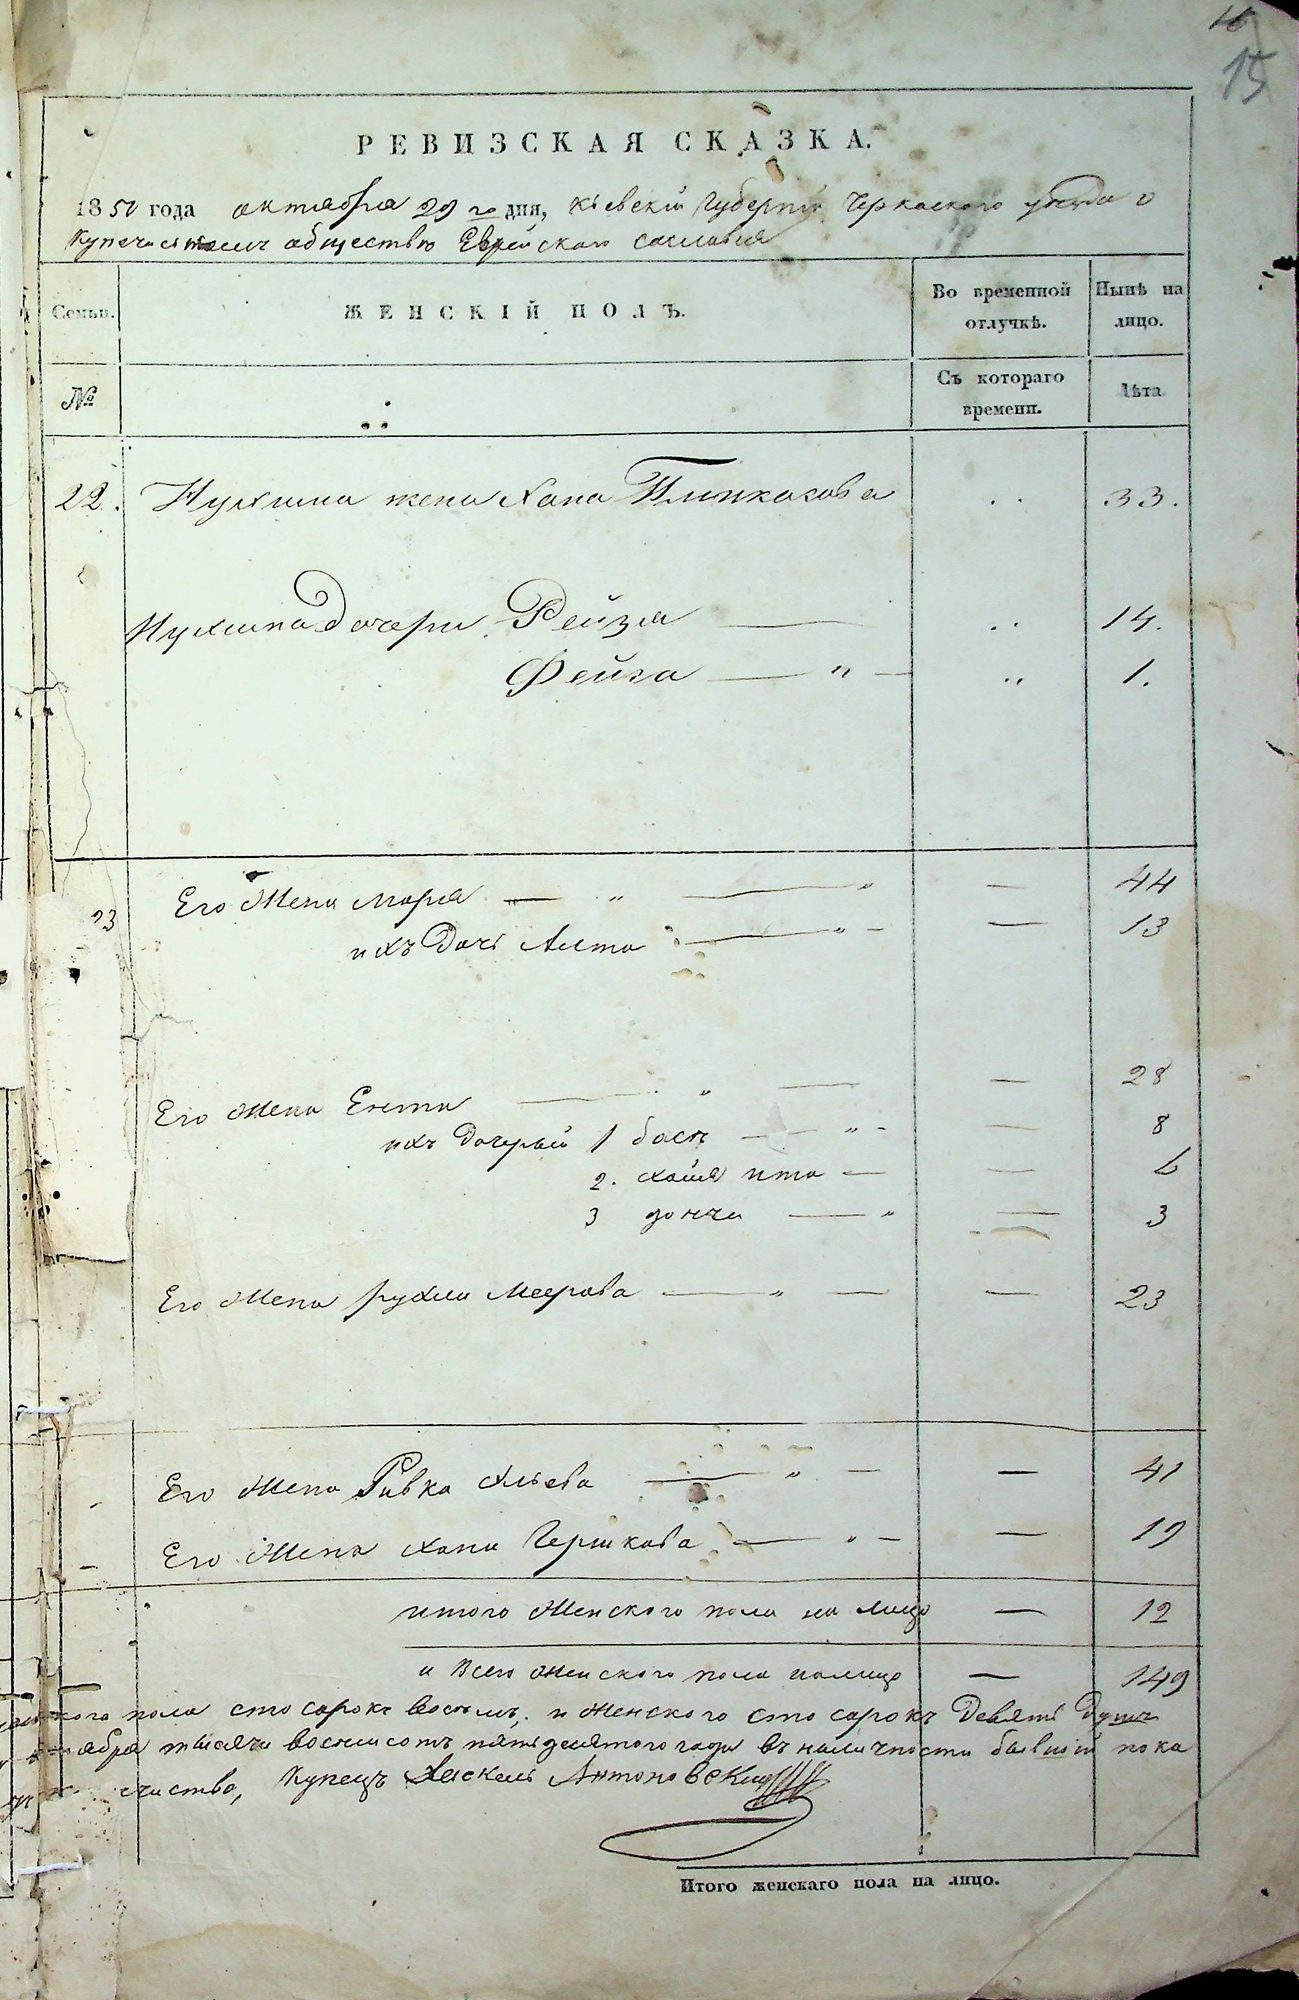 15
РЕВИЗСКАЯ СКАЗКА.
1850 года октября 29 го дня, Кіевской Губерніи Черкаского уезда о
Купеческом обществе Еврейского сословия
Семьи. ЖЕНСКІЙ ПОЛЪ. Во временной отлучкѣ. Нынѣ на лицо.
№ Съ котораго времени. Лѣта
22. Нухима жена Хана Пинкасова 33.
Нухима дочери Рейзя 14.
Фейга 1.
23 Его Жена Марья 44
ихъ Дочь 13
Его Жена Ента 28
ихъ Дочерьи 1 бася 8
2. хайя ита 6
3 3
Его Жена рухля Меерова 23
Его Жена Ривка 41
Его Жена хана Гершкова 19
итого Женского пола на лицо 12
и Всего Женского пола налицо 149
пола сто сорокъ восемь, и Женского сто сорокъ Девять Душъ
тысяча восемсотъ пятьдесятого года въ наличности бывшій пока
Купецъ Хаскель Антоновский
Итого женскаго пола на лицо.